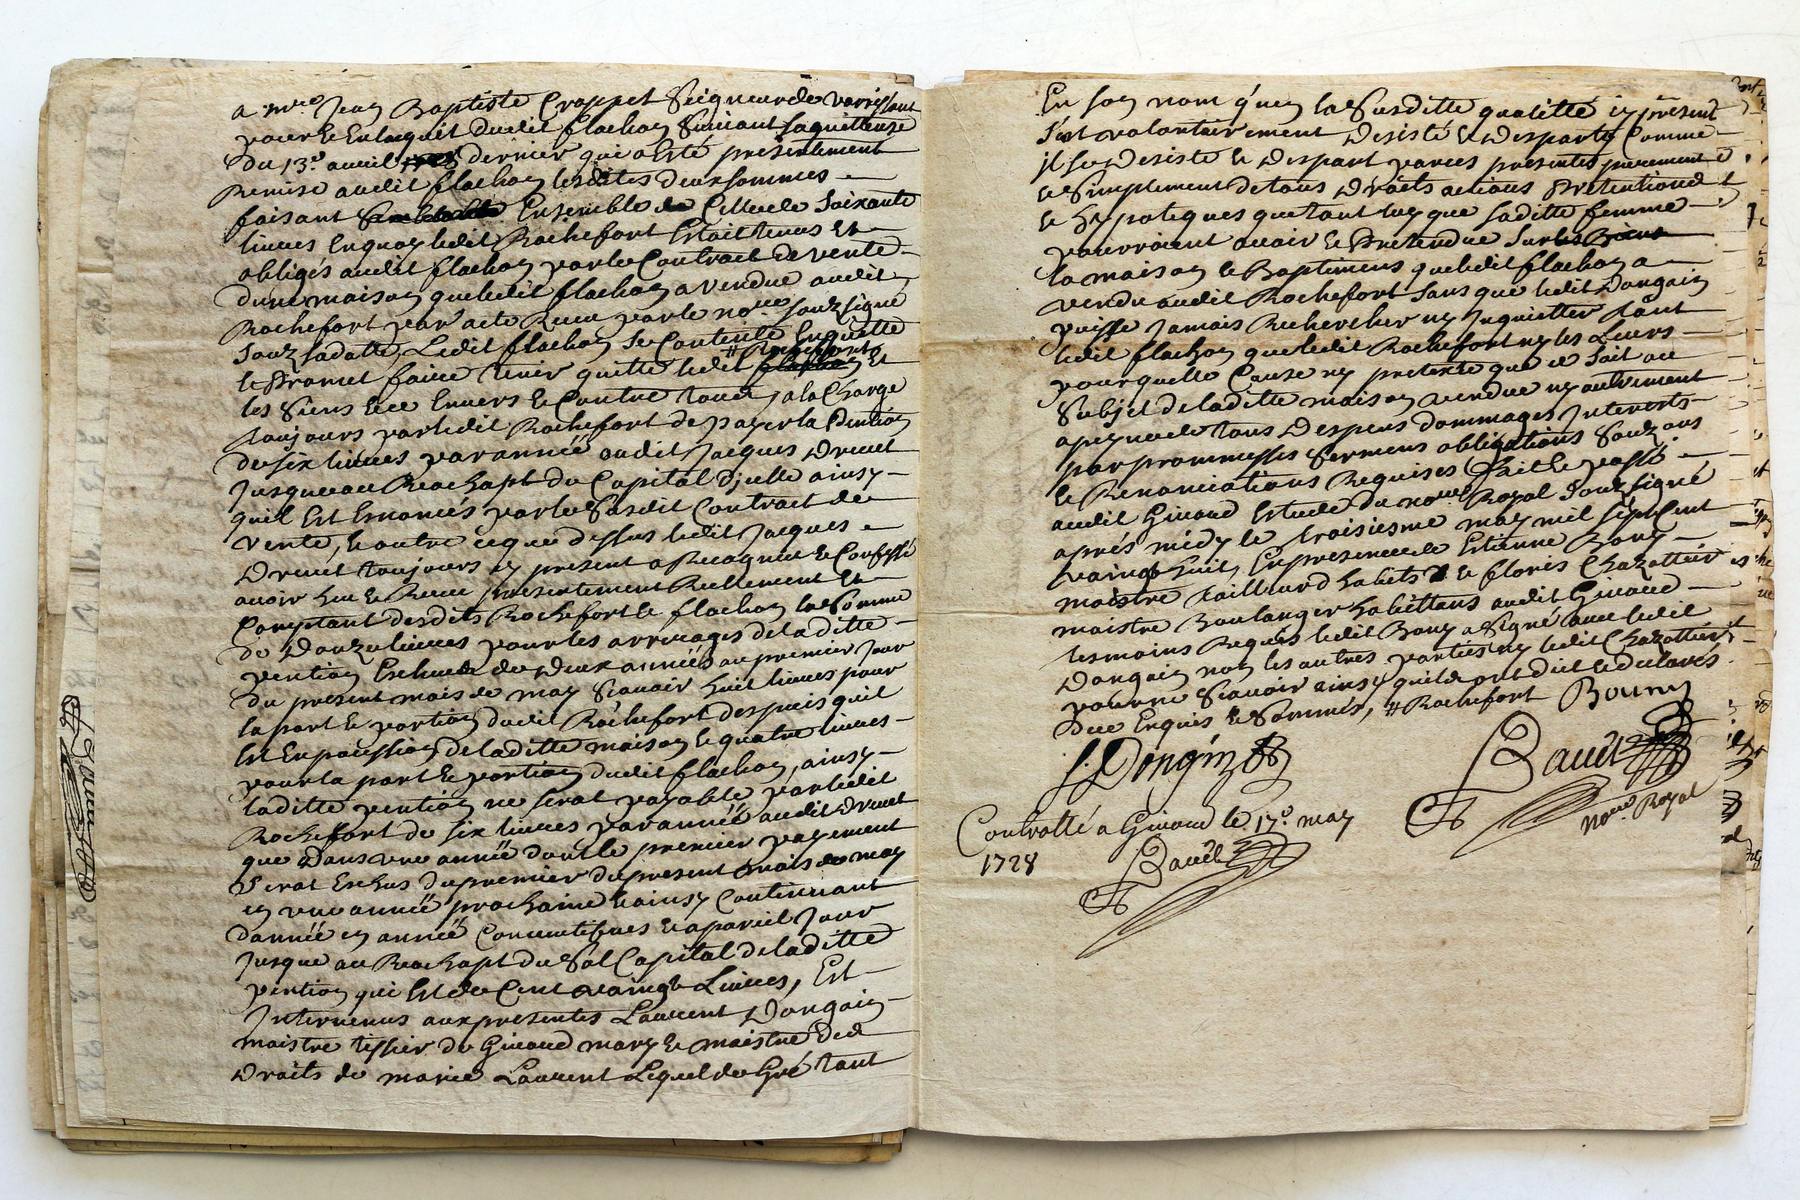 a m.re Jean Baptiste Crappet Seigneur de
pour le Enlacquit dudit flachon Suiuant saquittense
du 13.e auril dernier qui a Esté presentement
Remise audit flachon lesdites deux sommes
faisant Ensemble Celle de Soixante
liures Enquoy ledit Rochefort Estoit tenus Et
obligés audit flachon par le Contract de vente
dune maison que ledit flachon a vendue audit
Rochefort par acte Receu par le no.re souzsigné
souz sadatte, Ledit flachon se Contente Enquitte
le promet faire tenir quitte ledit # Rochefort Et
les Siens de ce Enuers & Contre tous, a la Charge
toujours par ledit Rochefort de payer la pention
de six liures par année audit Jacques Dreuet
Jusque au Reachapt du Capital djcelle ainsy
quil Est Enoncés par le Susdit Contract de
vente, & outre ce que dessus ledit Jacques
Dreuet toujours cy present a Recognu & Confessé
auoir heu & Receu presentement Reellement Et
Comptant desdits Rochefort & flachon la Somme
de Douze liures pour les arrerages de la ditte
pention Escheus de Deux années au premier Jour
du present mois de may Scauoir huit liures pour
la part & portion dudit Rochefort despuis quil
Est Enpocession de laditte maison & quatre liures
pour la part & portion dudit flachon, ainsy
laditte pention ne serat payable par ledit
Rochefort de six liures par année audit Dreuet
que dans vne année dont le premier payement
Serat Escheus du premier du present mois de may
en vne année prochaine & ainsy Continuant
dannée en année Consecutifues & a pareil Jour
Jusque au Reachapt du Sol Capital de laditte
pention qui Est de Cent vaingt Liures, Est
Interuenus aux presentes Laurent Dongain
maistre tissier de Giuaud mary & maistre des
Droits de marie Laurent Lequel de Gré tant
En son nom qu'en la Susditte qualitté cy present
S'est volontairement Desisté & Desparty Comme
jl se Desiste & Despart par ces presentes purement
& Simplement de tous Droits actions Pretentions
& hypoteques que tant luy que saditte femme
pourroient auoir & Pretendre Sur
la maison & Baptimens que ledit flachon a
vendu audit Rochefort sans que ledit Dongain
puisse Jamais Rechercher ny Inquietter tant
ledit flachon que ledit Rochefort ny les Leurs
pour quelle Cause ny pretexte que ce Soit au
Subjet de laditte maison vendue ny autrement
a peyne de tous Despens dommages Interests
par prommesses Sermens obligations Souz ons
& Renonciations Requises fait & passé
audit Giuaud Estude du no.re Royal Souzsigné
aprés midy le troisiesme may mil sept Cent
vaingt huit, En presence de Estienne Bouy
maistre tailleurd habits & floris Chazottier
maistre Boulanger habittans audit Giuaud
tesmoins Requis ledit Bouy a Signé auec ledit
Dongain non les autres parties ny ledit Chazottier
pour ne Scauoir ainsy quils ont dit & declarés
Due Enquis & Sommés, # Rochefort Bouy
L. Dongin
Bauët
no.re Royal
Controllé a Giuaud le 17.e may
1728 Bauët